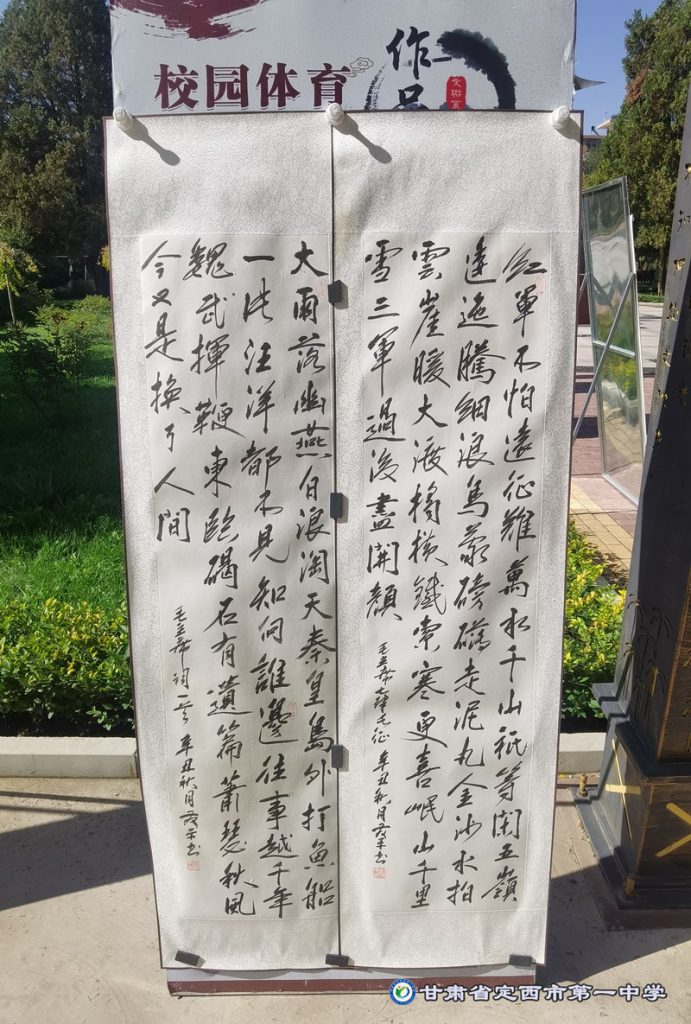 校园体育
作品
紅軍不怕遠征難萬水千山祇等閑五嶺
逶迤騰細浪烏蒙磅礴走泥丸金沙水拍
雲崖暖大渡橋橫鐵索寒更喜岷山千里
雪三軍過後盡開顏
毛主席七律長征 辛丑秋月 书
大雨落幽燕白浪淘天秦皇島外打魚船
一片汪洋都不見知向誰邊往事越千年
魏武揮鞭東臨碣石有遺篇蕭瑟秋風
今又是换了人間
毛主席詞一首 辛丑秋月 书
甘肃省定西市第一中学